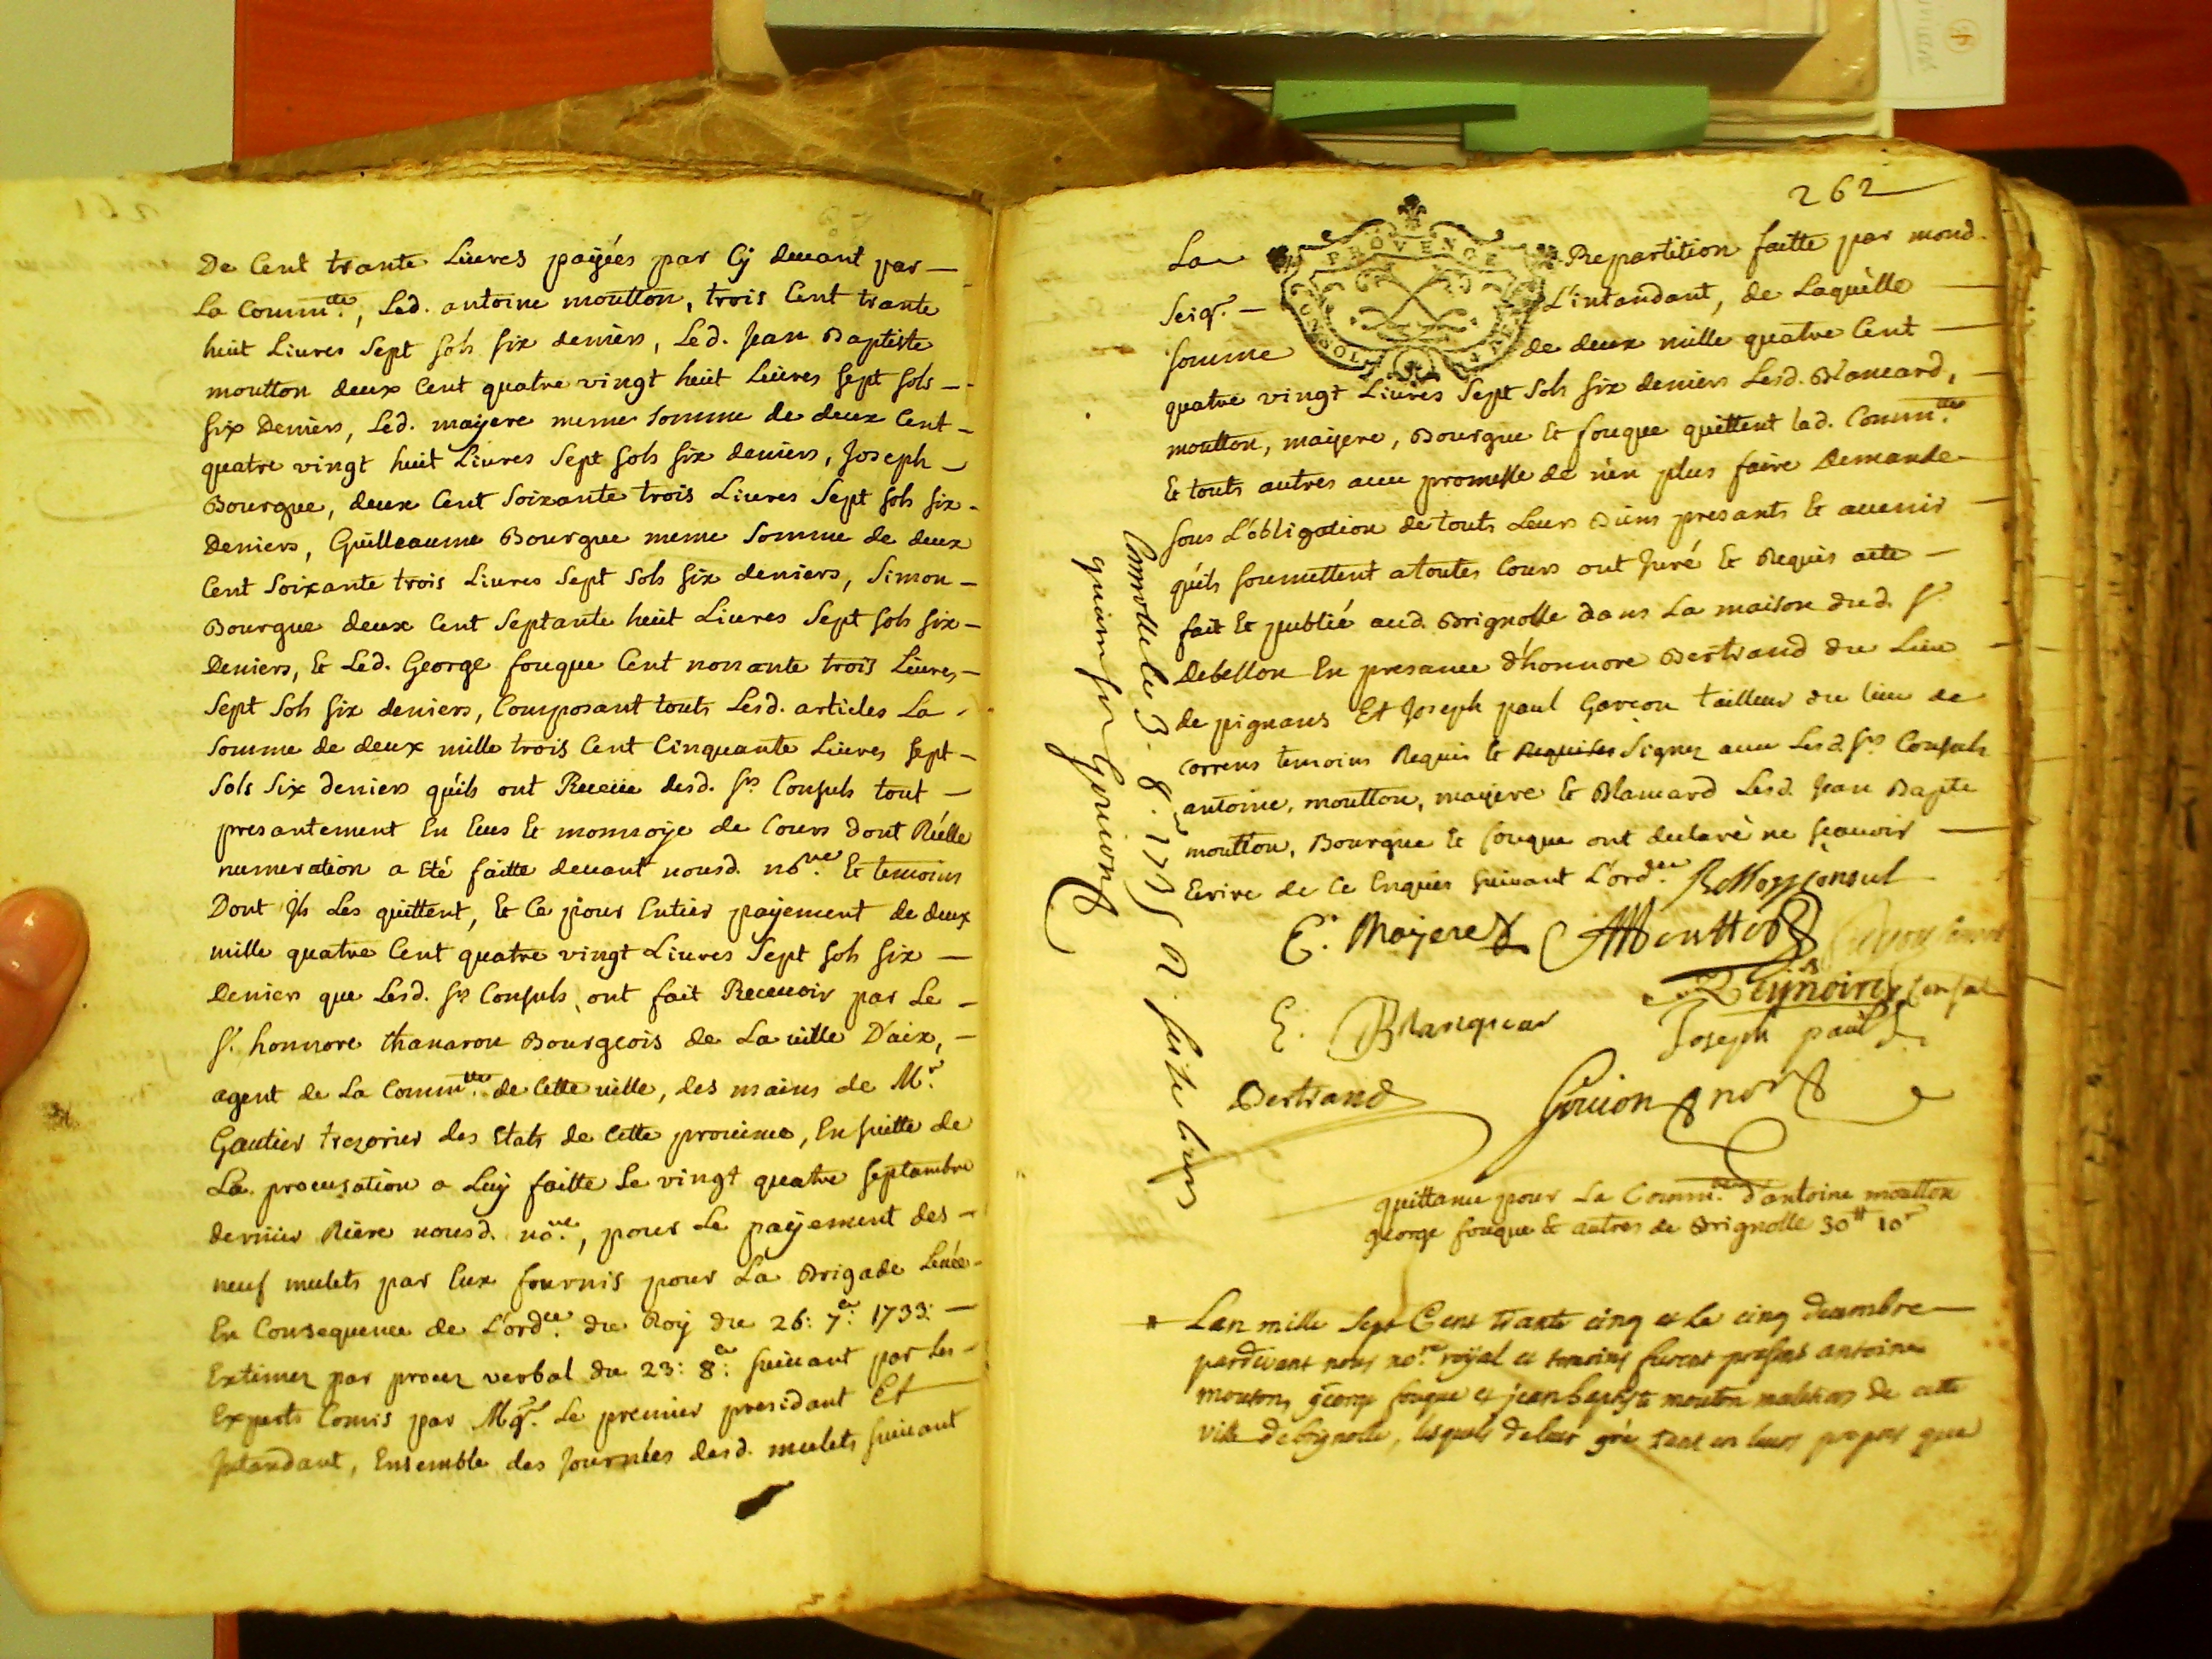 De Cent trante Liures payées par Cy deuant par
La Comm.tté, Led. antoine moutton, trois Cent trante
huit Liures Sept sols six deniers, Led. Jean Baptiste
moutton deux Cent quatre vingt huit Liures Sept sols
six Deniers, Led. mayere meme Somme de deux Cent
quatre vingt huit Liures Sept sols six deniers, Joseph
Bourgue, deux Cent Soixante trois Liures Sept sols six
Deniers, Guilleaume Bourgue meme Somme de deux
Cent Soixante trois Liures Sept Sols six deniers, Simon
Bourgue deux Cent Septante huit Liures Sept sols six
Deniers, Et Led. George fouque Cent nonante trois Liures
Sept Sols six deniers, Composant touts Lesd. articles La
Somme de deux mille trois Cent Cinquante Liures Sept
Sols Six deniers qu'ils ont Receüe desd. Srs Consuls tout
presantement En Ecus Et monnoye de Cours Dont Réelle
numeration a Eté faitte deuant nousd. no.re Et temoins
Dont Ils Les quittent, Et Ce pour Entier payement de deux
mille quatre Cent quatre vingt Liures Sept sols six
Deniers que Lesd. Srs Consuls ont fait Receuoir par Le
Sr. honnore thanaron Bourgeois de La uille D'aix,
agent de La Comm.tté de Cette uille, des mains de Mr.
Gautier trezorier des Etats de Cette prouince, En suitte de
La procuration a Luy faitte Le vingt quatre Septambre
dernier Riere nousd. no.re, pour Le payement des
neuf mulets par Eux fournis pour La Brigade Leuée
En Consequence de L'ord.ce du Roy du 26: 7e: 1733:
Extimez par procez verbal du 23: 8e: suiuant par Les
Experts Comis par Mgr. Le premier presidant Et
Intandant, Ensemble des Journées desd. mulets suiuant
262
PROVENCE
La Repartition faitte par mond.
Seigr. L'intandant, de Laquelle
Somme de deux mille quatre Cent
quatre vingt Liures Sept Sols six deniers Lesd. Blancard,
moutton, mayere, Bourgue Et fouque quittent lad. Comm.tté
Et touts autres auec promesse de n'en plus faire Demande
sous L'obligation de touts Leurs Biens presants Et auenir
qu'ils soumettent a toutes Cours ont Juré Et Requis acte
fait Et publié aud. Brignolle dans La maison dud. Sr.
Debellon En presance d'honnore Bertrand du Lieu
de pignans Et Joseph paul Garçon tailleur du lieu de
correns temoins Requis Et Signez auec Lesd. Srs Consuls
antoine, moutton, mayere Et Blancard Lesd. Jean Bapte
moutton, Bourgue Et fouque ont declaré ne sçauoir
Ecrire de Ce Enquis suiuant L'ord.ce Bellon Consul
E. Mayere Moutton
Consul
E. Blanquar Joseph paul
Bertrand Goujon nore
Controlle le 3. 8bre 1735
quittance pour La Comm.tté d'antoine moutton
george fouque Et autres de Brignolle 30tt 10s
Lan mille Sept Cens trante cinq et le cinq decembre
pardeuant nous no.re royal et temoins furent presens antoine
mouton, george fouque et jean baptiste mouton muletiers de cette
ville de brignolle, lesquels de leur gré tant en leurs propres que